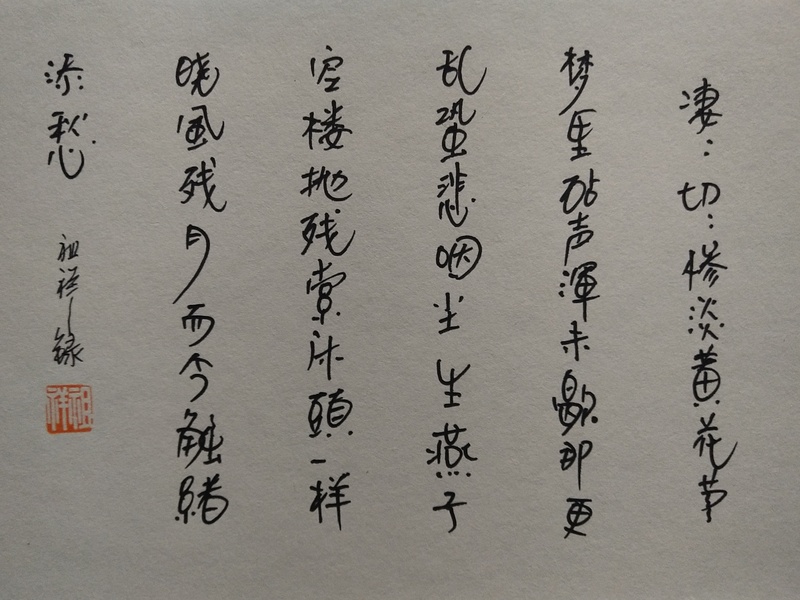 凄：切：惨淡黄花节
梦里砧声渾未歇那更
乱蛩悲咽尘生燕子
空楼抛残索床頭一样
晓風残月而今触緒
添愁
祖祥録
祖祥